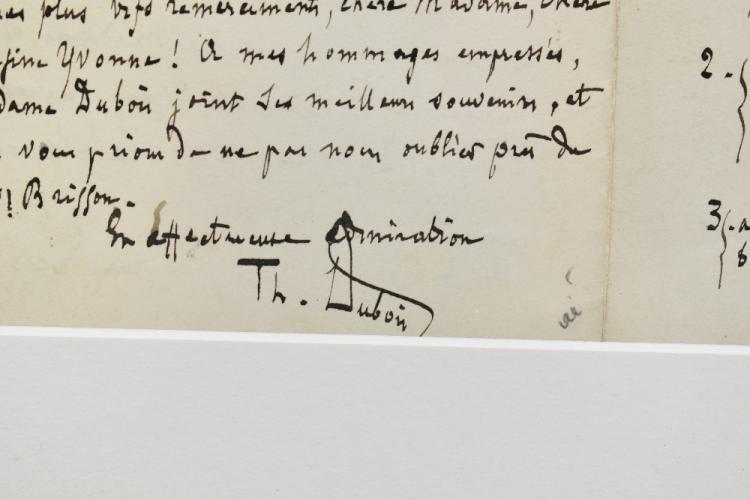 plus vifs remerciements, chère Madame, chère
Yvonne! A mes hommages empressés,
Dubois joint ses meilleurs souvenirs, et
vous prions de ne pas nous oublier près de
Brisson.
En affectueuse admiration
Th. Dubois
2.
3.